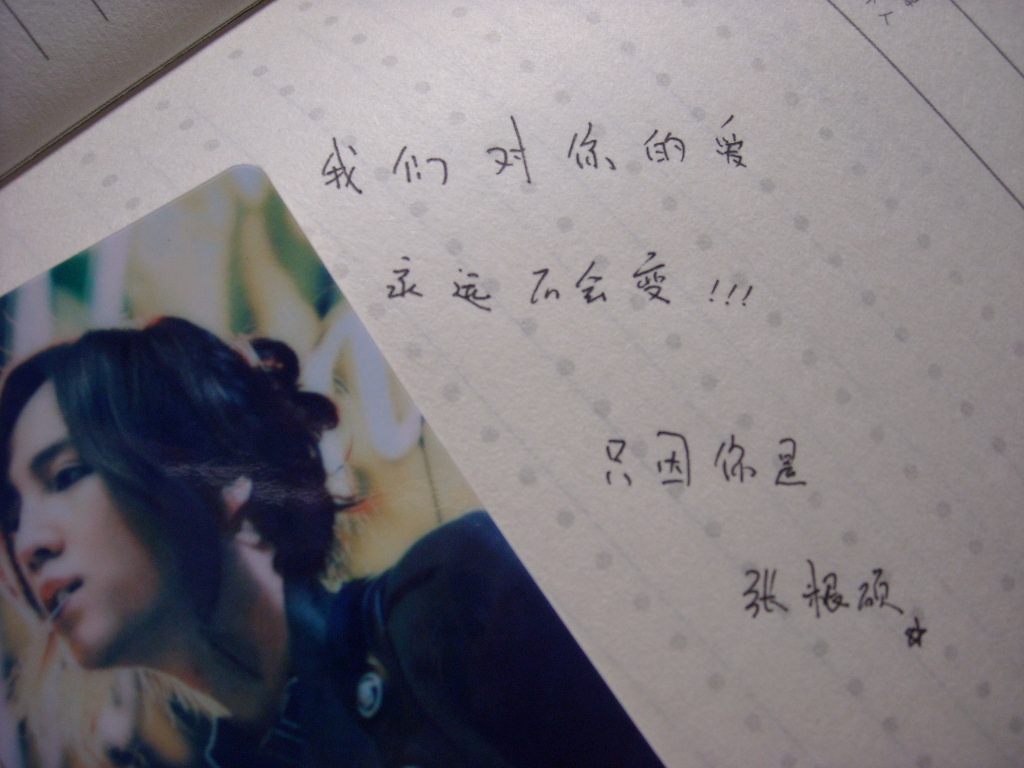 我们对你的爱
永远不会变!!!
只因你是
张根硕